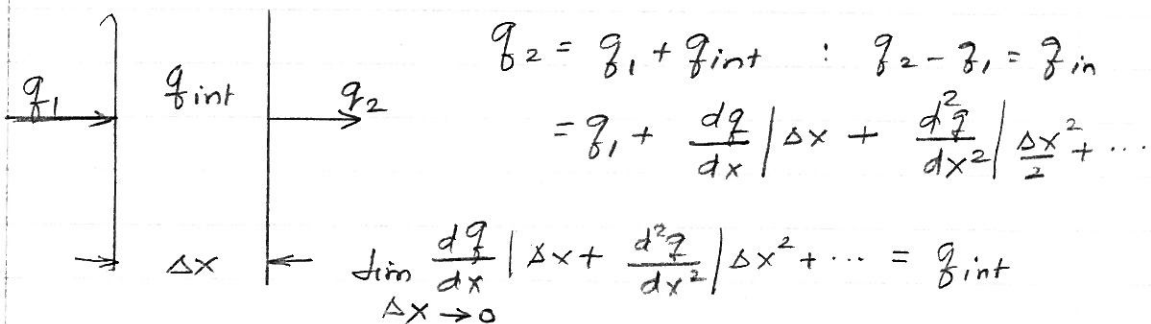 q₂ = q₁ + q_int : q₂ - q₁ = q_in
q₁ q_int q₂
= q₁ + dq/dx | Δx + d²q/dx² | Δx²/2 + ...
Δx
lim Δx→0 dq/dx | Δx + d²q/dx² | Δx² + ... = q_int